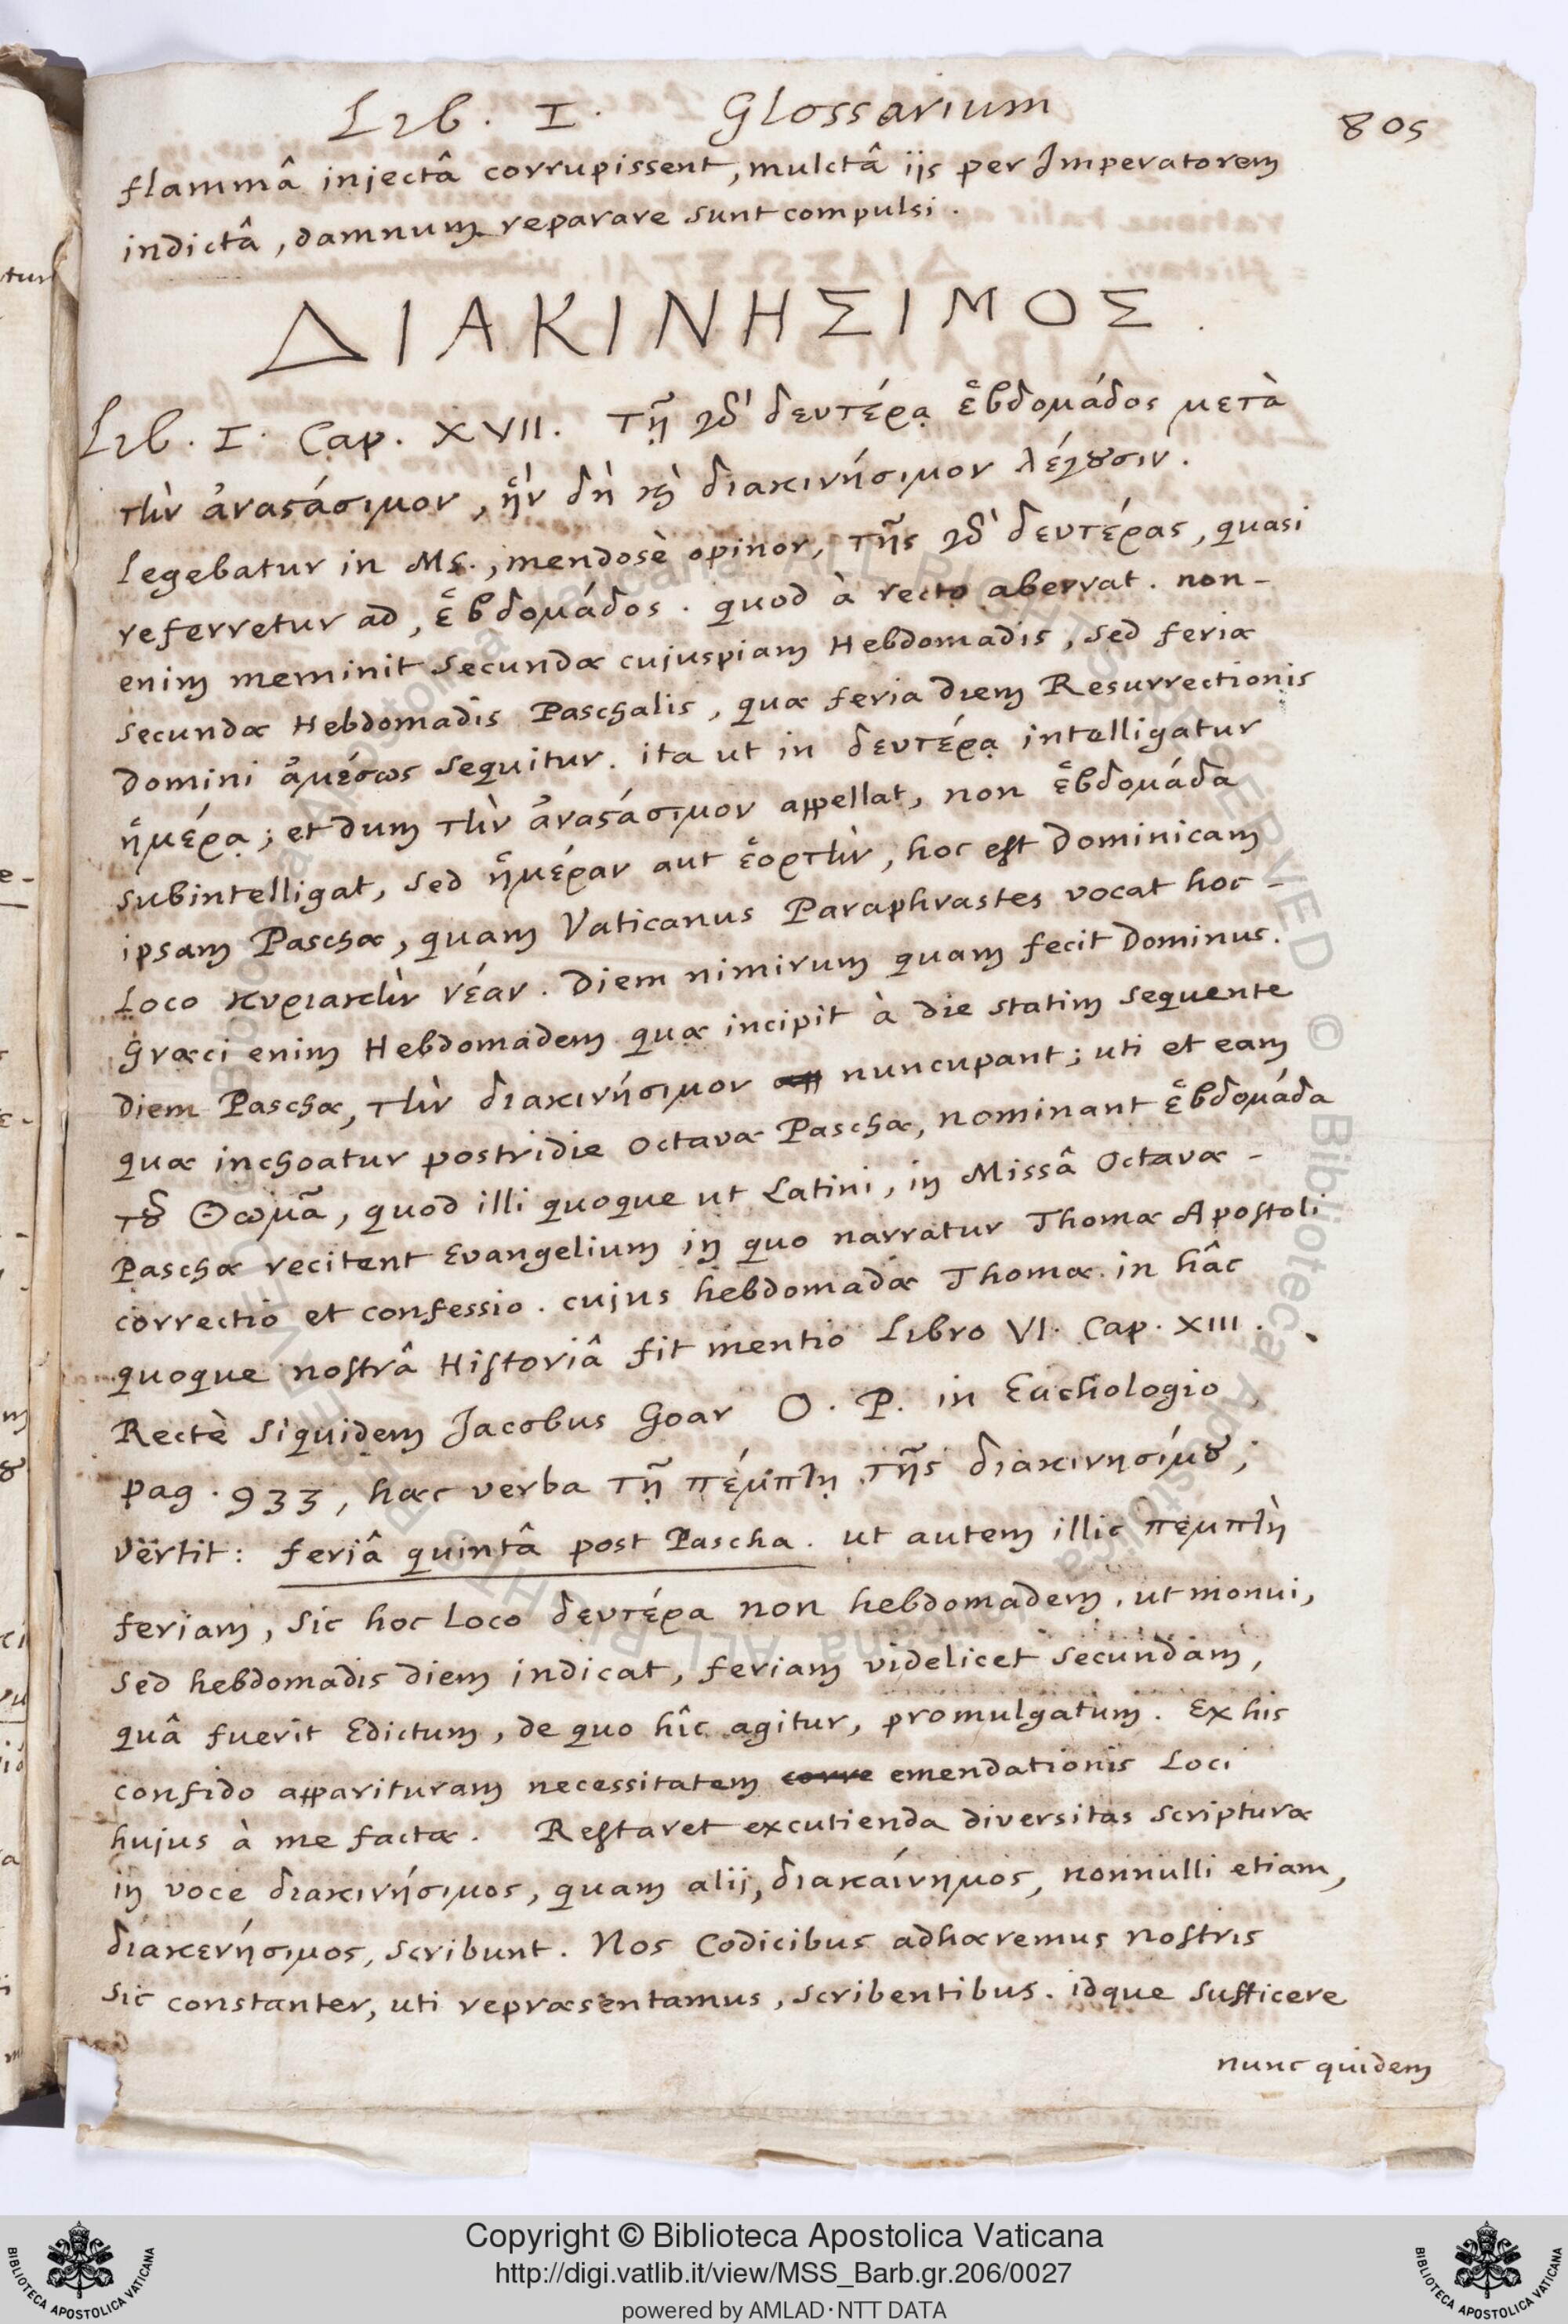 Lib. I. Glossarium 805
flammâ injectâ corrupissent, mulctâ ijs per Imperatorem
indictâ, damnum reparare sunt compulsi.
ΔΙΑΚΙΝΗΣΙΜΟΣ.
Lib. I. Cap. XVII. τῇ γ̃ δευτέρᾳ ἑβδομάδος μετὰ
τὴν ἀναστάσιμον, ἣν δὴ καὶ διακινήσιμον λέγουσιν.
Legebatur in Ms., mendosè opinor, τῆς γ̃ δευτέρας, quasi
referretur ad, ἑβδομάδος. quod à recto aberrat. non-
enim meminit secundæ cujuspiam Hebdomadis, sed feriæ
secundæ Hebdomadis Paschalis, quæ feria diem Resurrectionis
Domini ἀμέσως sequitur. ita ut in δευτέρᾳ intelligatur
ἡμέρᾳ; et dum τὴν ἀναστάσιμον appellat, non ἑβδομάδα
subintelligat, sed ἡμέραν aut ἑορτὴν, hoc est Dominicam
ipsam Paschæ, quam Vaticanus Paraphrastes vocat hoc-
Loco κυριακὴν νέαν. Diem nimirum quam fecit Dominus.
Græci enim Hebdomadem quæ incipit à die statim sequente
Diem Paschæ, τὴν διακινήσιμον nuncupant; uti et eam
quæ inchoatur postridie Octavæ Paschæ, nominant ἑβδομάδα
τοῦ Θωμᾶ, quod illi quoque ut Latini, in Missâ Octavæ-
Paschæ recitent Evangelium in quo narratur Thomæ Apostoli
correctio et confessio. cujus hebdomadæ Thomæ in hâc
quoque nostrâ Historiâ fit mentio Libro VI. Cap. XIII.
Rectè siquidem Jacobus Goar O. P. in Euchologio
pag. 933, hæc verba τῇ πέμπτῃ τῆς διακινησίμου,
vertit: feriâ quintâ post Pascha. ut autem illic πεμπτὴ
feriam, sic hoc Loco δευτέρα non hebdomadem, ut monui,
sed hebdomadis diem indicat, feriam videlicet secundam,
quâ fuerit Edictum, de quo hîc agitur, promulgatum. Ex his
confido apparituram necessitatem corre emendationis Loci
hujus à me factæ. Restaret excutienda diversitas scripturæ
in voce διακινήσιμος, quam alij, διακαίνημος, nonnulli etiam,
διακενήσιμος, scribunt. Nos Codicibus adhæremus nostris
sic constanter, uti repræsentamus, scribentibus. idque sufficere
nunc quidem
Copyright © Biblioteca Apostolica Vaticana
http://digi.vatlib.it/view/MSS_Barb.gr.206/0027
powered by AMLAD·NTT DATA
BIBLIOTECA APOSTOLICA VATICANA
BIBLIOTECA APOSTOLICA VATICANA